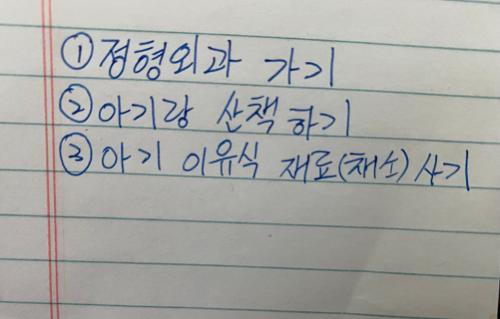 ① 정형외과 가기
② 아기랑 산책 하기
③ 아기 이유식 재료(채소) 사기